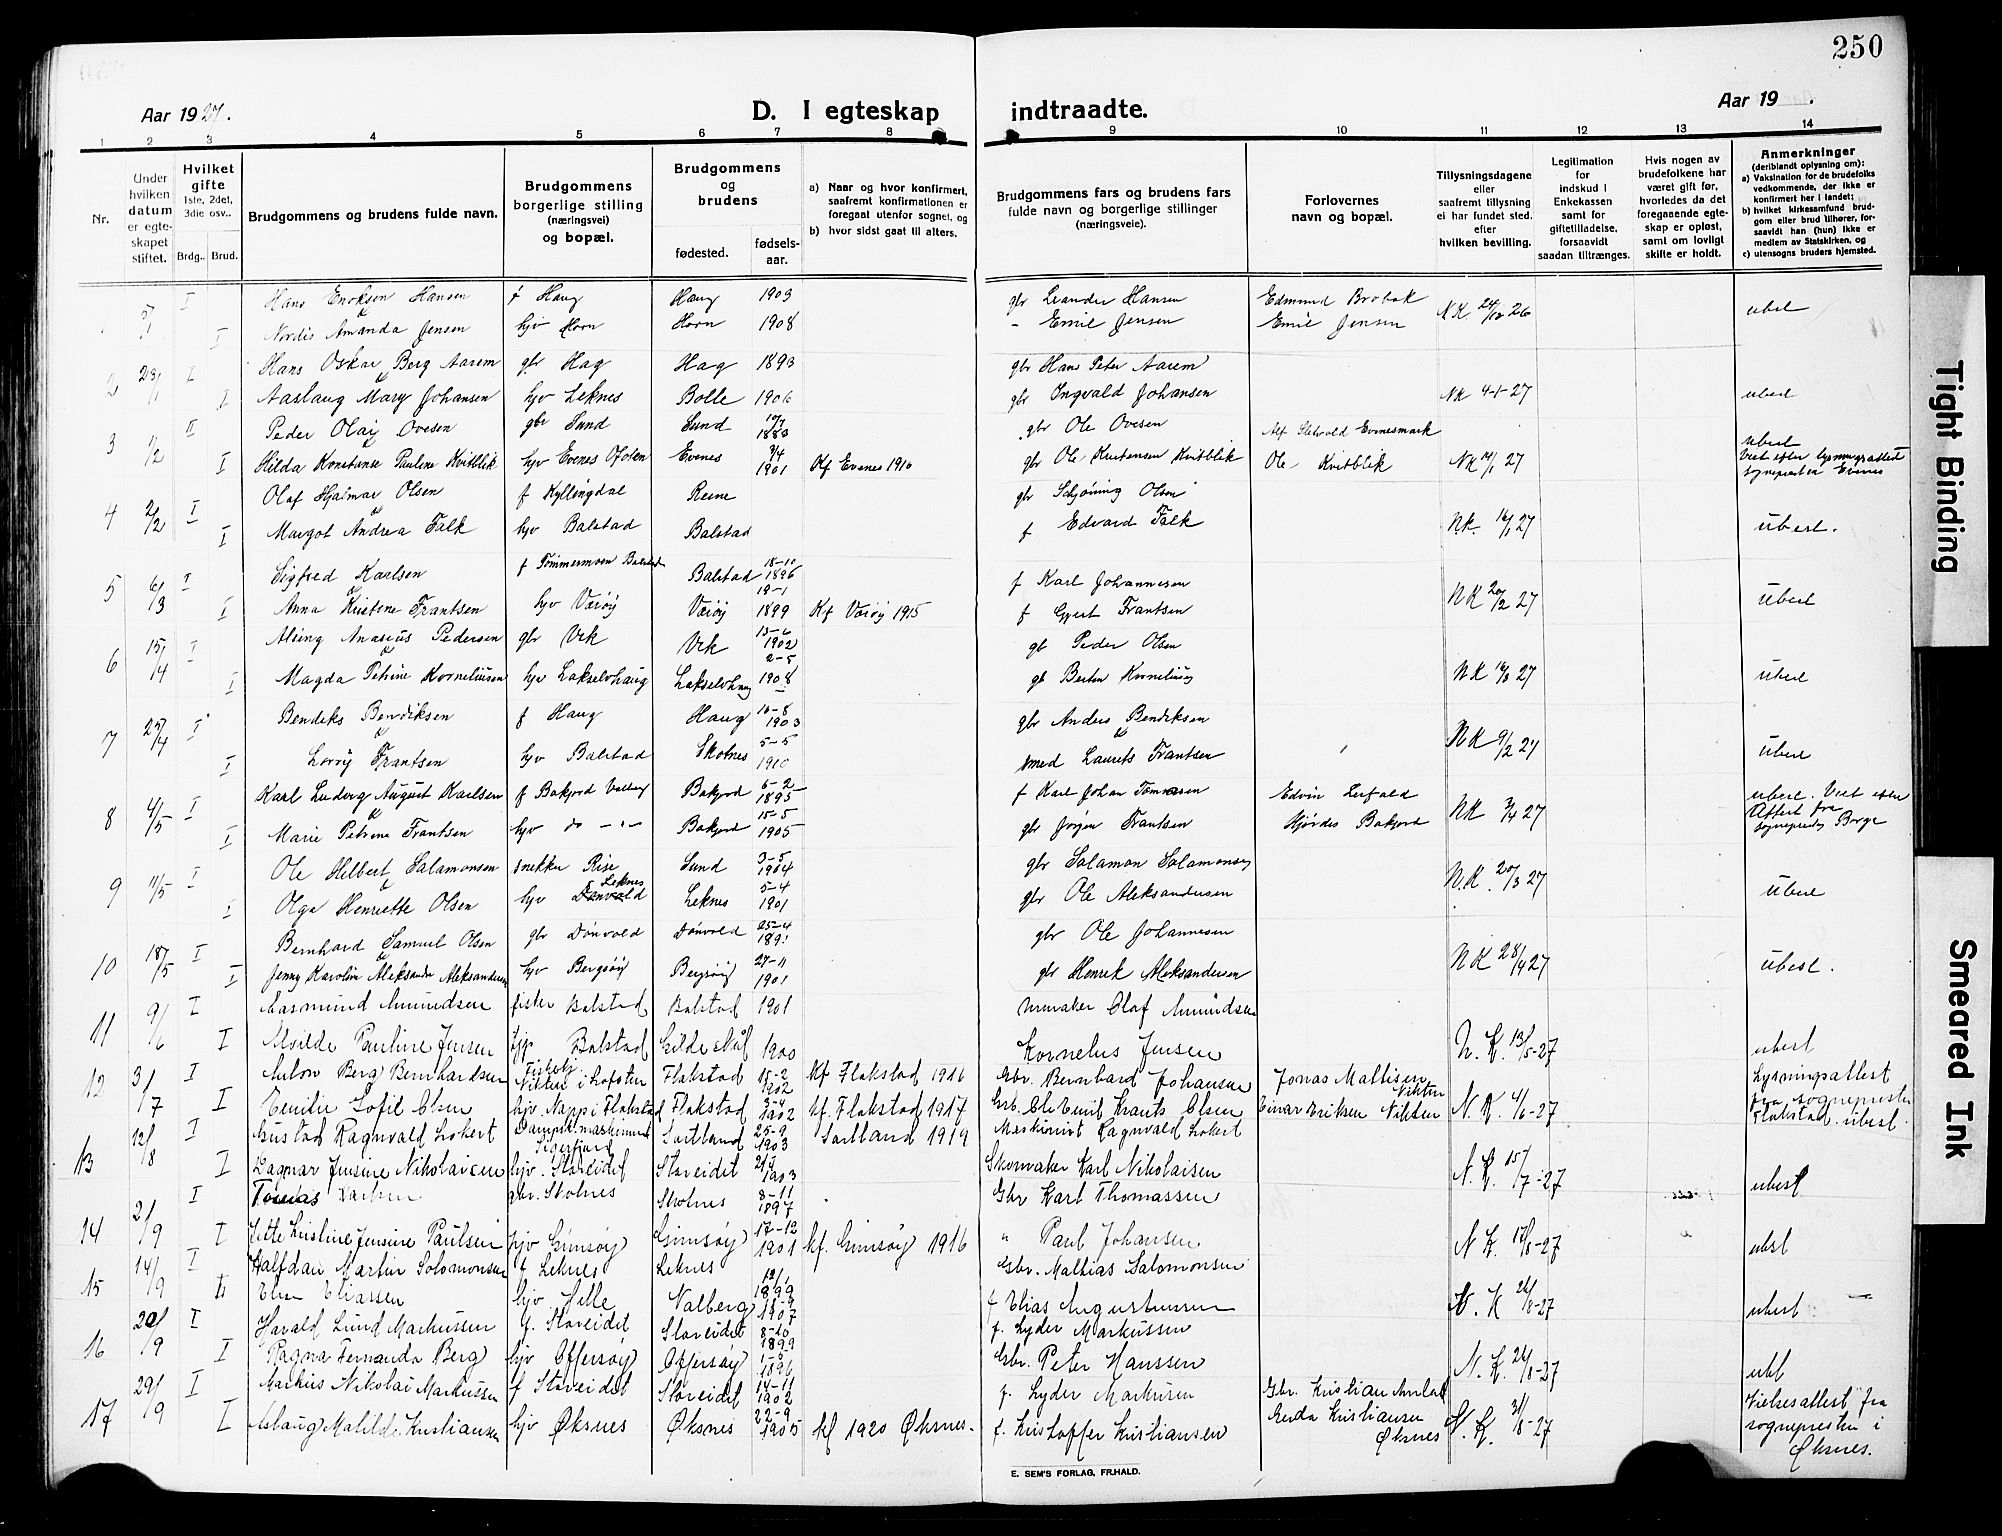 250
Aar 1927.
D. I egteskap indtraadte.
Aar 19 .
1 2 3 4 5 6 7 8 9 10 11 12 13 14
Nr.
Under hvilken datum er egteskapet stiftet.
Hvilket gifte 1ste, 2det, 3die osv..
Brdg.. Brud.
Brudgommens og brudens fulde navn.
Brudgommens borgerlige stilling (næringsvei) og bopæl.
Brudgommens og brudens
fødested. fødsels-aar.
a) Naar og hvor konfirmert, saafremt konfirmationen er foregaat utenfor sognet, og
b) hvor sidst gaat til alters.
Brudgommens fars og brudens fars fulde navn og borgerlige stillinger (næringsveie).
Forlovernes navn og bopæl.
Tillysningsdagene eller saafremt tillysning ei har fundet sted. efter hvilken bevilling.
Legitimation for indskud i Enkekassen samt for giftetilladelse, forsaavidt saadan tiltrænges.
Hvis nogen av brudefolkene har været gift før, hvorledes da det foregaaende egteskap er opløst, samt om lovligt skifte er holdt.
Anmerkninger
(deriblandt oplysning om):
a) Vaksination for de brudefolks vedkommende, der ikke er konfirmert her i landet;
b) hvilket kirkesamfund brudgom eller brud tilhører, forsaavidt han (hun) ikke er medlem av Statskirken, og
c) utensogns bruders hjemsted.
1 5/1 I Hans Enoksen Hansen f Haug Haug 1903 gbr Leander Hansen Edmund Brobak NK 24/12 26 ubesl
I Nordis Amanda Jensen hjv Horn Horn 1908 - Emil Jensen Emil Jensen
2 23/1 I Hans Oskar Berg Aarem gbr Hag Hag 1893 gbr Hans Peter Aarem
I Aaslaug Mary Johansen hjv Leknes Bolle 1906 gbr Ingvald Johansen NK 4-1-27 ubesl
3 11/2 II Peder Olai Ovesen gbr Sund Sund 1883 gbr Ole Ovesen Alf Evenesmark ubesl
I Hilda Konstanse Pauline Kvitblik hjv Evenes Ofoten Evenes 1901 Kf Evenes 1916 gbr Ole Kristensen Kvitblik Ole Kvitblik NK 27 Viet efter lysningsattest sognepresten Evenes
4 2/2 I Olaf Hjalmar Olsen f Kyllingdal Reine gbr Schjöning Olsen
I Margot Andrea Falk hjv Balstad Balstad f Edvard Falk NK. 16/1 27 ubesl.
5 6/3 I Sigfred Karlsen f Tömmermoen Balstad Balstad 18-10 1896 f Karl Johannesen NK 20/2 27 ubesl
I Anna Kristine Frantsen hjv Væröy Væröy 19-1 1899 Kf Væröy 1915 f Gjert Frantsen
6 15/4 I Alsing Anasius Pedersen gbr Vik Vik 13-6 1902 gb Peder Olsen
I Magda Petrine Korneliusen hjv Lakselvhaug Lakselvhaug 2-5 1908 gb Berton Kornelius NK 27 ubesl
7 25/4 I Bendiks Bendiksen f Haug Haug 16-8 1903 gbr Anders Bendiksen NK 9/2 27
I Lovvy Frantsen hjv Balstad Skotnes 5-5 1910 smed Laurits Frantsen ubesl
8 4/5 I Karl Ludvig August Karlsen f Bakjord Valberg Bakjord 6-2 1895 f Karl Johan Edvin Leifald NK 3/4 27 ubesl. Viet efter Attest fra sogneprest Borge
I Marie Petrine Frantsen hjv do -"- Bakjord 15-5 1905 gbr Jörgen Frantsen Hjördis Bakjord
9 11/5 I Ole Helbert Salamonsen snekker Rise Sund 3-5 1904 gbr Salamon Salamonsen N.K. 20/3 27 ubesl
I Olga Henriette Olsen hjv Leknes Leknes 5-4 1901 gbr Ole Aleksandersen
10 18/5 I Bernhard Samuel Olsen gbr Dönvold Dönvold 25-4 1891 gbr Ole Johannesen NK 28/4 27 ubesl.
I Jenny Karolin Aleksandra Aleksandersen hjv Bergsöy Bergsöy 27-11 1901 gbr Henrik Aleksandersen
11 9/6 I Aasmund Amundsen fisker Balstad Balstad 1901 Urmaker Olaf Amundsen
I Alvilde Pauline Jensen hjp Balstad Gildeskål 1900 Kornelius Jensen N. K. 13/5-27 ubesl
12 3/7 I Anton Berg Bernhardsen Fiskebj Nikten i Lofoten Flakstad 15-2 1902 kf Flakstad 1916 Gbr. Bernhard Johansen Jonas Mattisen Nikten Lysningsattest fra sognepresten Flakstad. ubesl.
I Emilie Sofie Olsen hjv. Napp i Flakstad Flakstad 3-4 1902 kf. Flakstad 1917 Gb. Ole Emil Krants Olsen Einar Eriksen Nikten N. K. 4/6-27
13 12/8 I Gustav Ragnvald Lokert Dampsk. maskinist Sigerfjord Sortland 25-9 1903 Sortland 1919 Maskinist Ragnvald Lokert
I Dagmar Jensine Nikolaisen hjv. Storeidet Storeidet 1903 Skomaker Karl Nikolaisen N. K. 15/7-27 ubesl
14 2/9 I Tomas Karlsen gbr. Skotnes Skotnes 8-11 1897 Gbr Karl Thomassen
I Jette Kristine Jensine Paulsen hjv Gimsöy Gimsöy 17-12 1901 kf. Gimsöy 1916 " Paul Johansen N. K. -27 ubsl
15 14/9 I Halfdan Martin Solomonsen f Leknes Leknes 1899 Gbr. Mathias Salomonsen
Elsen Eliassen hjv Helle Valberg 1907 f Elias Augustinussen N. K 26/8-27 ubesl
16 20/9 I Harald Lund Markussen f. Storeidet Storeidet 8-10 1899 f. Lyder Markussen
I Ragna Fernanda Berg hjv Offersöy Offersöy 1896 Gbr. Peter Hanssen N. K. 26/8-27 ubl
17 29/9 I Markus Nikolai Markussen f Storeidet Storeidet 14-11 1902 f. Lyder Markusen Gbr. Kristian Vielsesattest fra
I Aslaug Matilde Kristiansen hjv Øksnes Øksnes 22-9 1905 kf 1920 Øksnes. f. Kristoffer Kristiansen Gerda Kristiansen Øksnes N. K. 31/8-27 sognepresten i Øksnes.
E. SEM'S FORLAG, FR.HALD.
Tight Binding
Smeared Ink